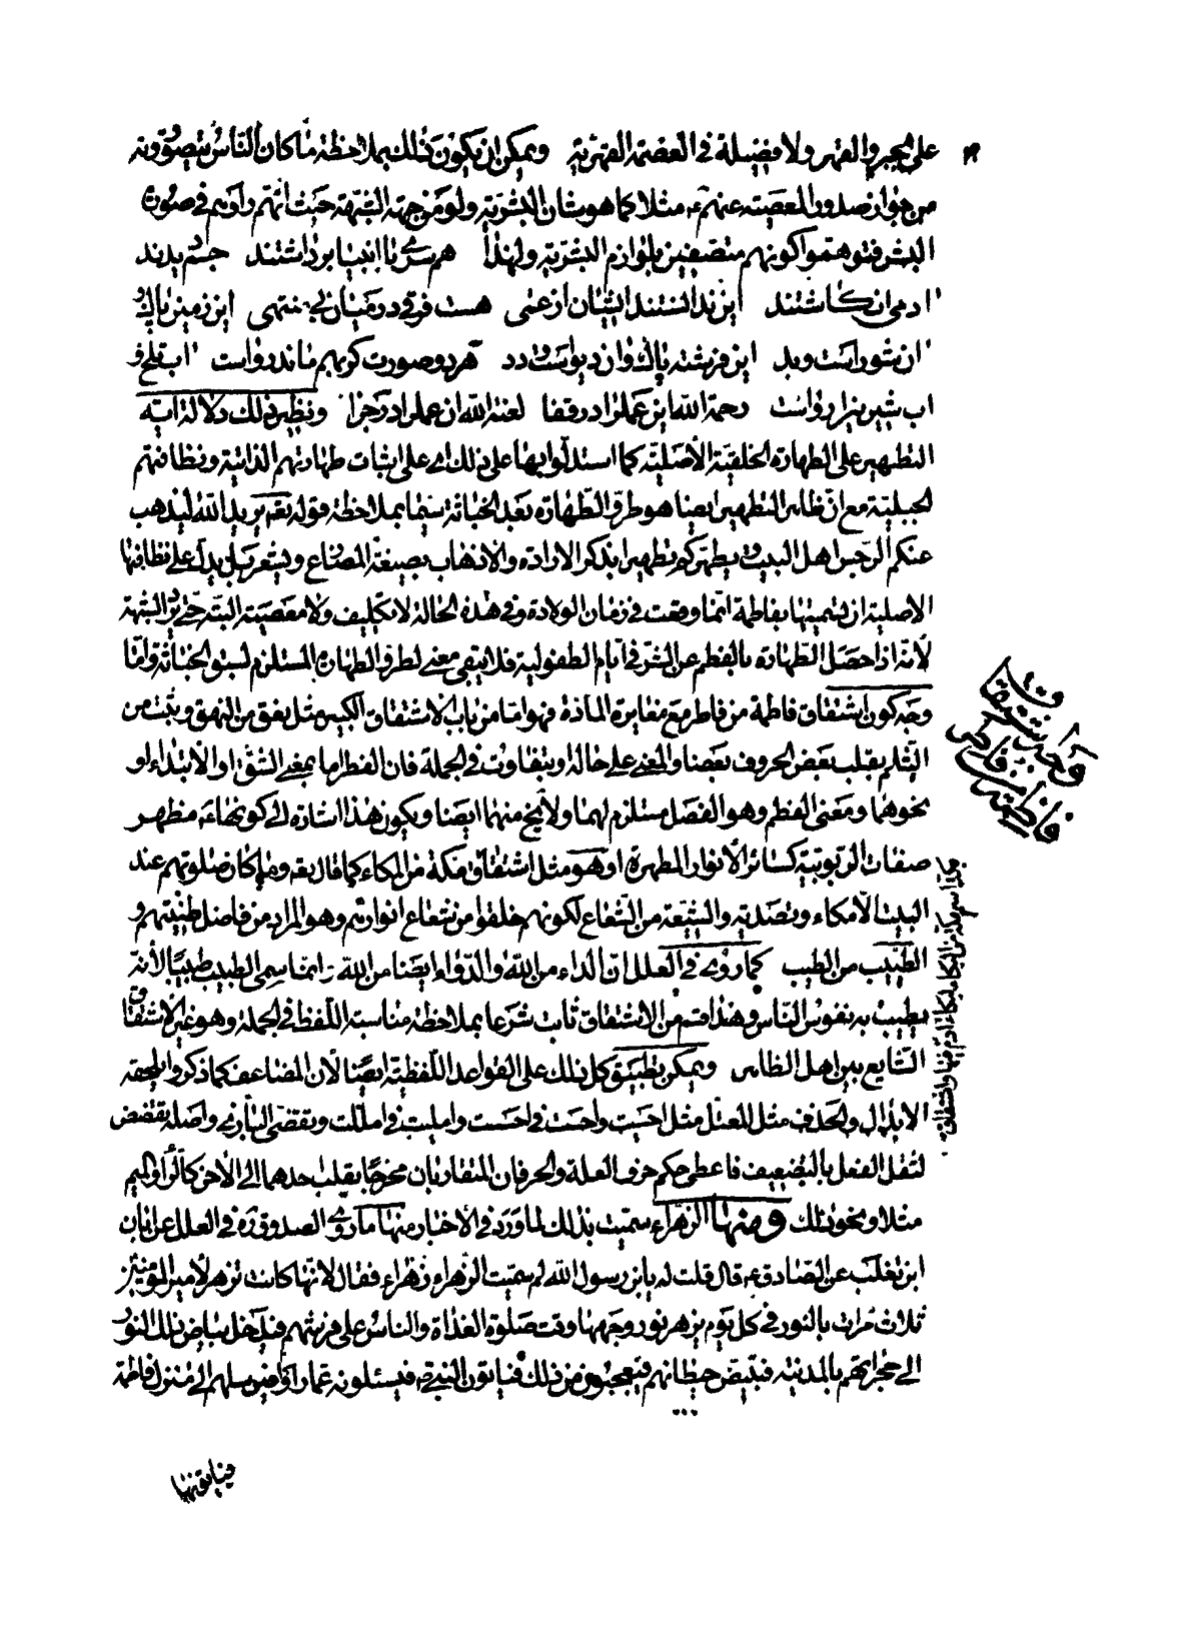 على الجبر والقهر ولا فضيلة فى العصمة القهرية ويمكن ان يكون ذلك بملاحظة ما كان الناس يتصورونه
من جواز صدور المعصية عنهم ع مثلا كما هو شان البشرية ولو من جهة الشبهة حيث انهم راوهم فى صورة
البشر فتوهموا كونهم متصفين بلوازم البشرية ولهذا همسرى با انبيا برداشتند جسم ديدند
ادمى انكاشتند اين ندانستند ايشان از عمى هست فرقى در ميان بى منتهى اين زمين پاك و
ان شور است وبد اين فرشته پاك وان ديو است ودد هر دو صورت كر بهم ماند رواست اب تلخ و
اب شيرين را رواست رحمة الله اين عمل را در قفا لعنة الله ان عمل را در جزا ونظير ذلك دلالة اية
التطهير على الطهارة الخلقية الاصلية كما استدلوا بها على ذلك اى على اثبات طهارتهم الذاتية ونظافتهم
الجبلية مع ان ظاهر التطهير ايضا هو طرو الطهارة بعد الخباثة سيما بملاحظة قوله تعه يريد الله ليذهب
عنكم الرجس اهل البيت ويطهركم تطهيرا بذكر الارادة والاذهاب بصيغة المضارع ويشعر بل يدل على نظافتها
الاصلية ان تسميتها بفاطمة انما وقعت فى زمان الولادة وفى هذه الحالة لا تكليف ولا معصية البتة حتى يرد الشبهة
لانه اذا حصل الطهارة بالفطم عن الشر فى ايام الطفولية فلا يبقى معنى لطرو الطهارة المستلزم لسبق الخباثة واما
وجه كون اشتقاق فاطمة من فاطر مع مغايرة المادة فهو اما من باب الاشتقاق الكبير مثل نعق من النهق وثبت من
الثلم بقلب بعض الحروف بعضا والمعنى على حاله او يتفاوت فى الجملة فان الفطر اما بمعنى الشق او الابتداء او
نحوهما ومعنى الفطم وهو الفصل مستلزم لهما ولا يخ منهما ايضا ويكون هذا اشارة الى كونها ع مظهر
صفات الربوبية كسائر الانوار المطهرة او هو مثل اشتقاق مكة من المكاء كما قال تعه وما كان صلوتهم عند
البيت الا مكاء وتصدية والشيعة من الشعاع لكونهم خلقوا من شعاع انوارهم وهو المراد من فاضل طينتهم و
الطبيب من الطيب كما روى فى العلل ان الداء من الله والدواء ايضا من الله وانما سمى الطبيب طبيبا لانه
يطيب به نفوس الناس وهذا قسم من الاشتقاق ثابت شرعا بملاحظة مناسبة اللفظ فى الجملة وهو غير الاشتقاق
الشايع بين اهل الظاهر ويمكن تطبيق كل ذلك على القواعد اللفظية ايضا لان المضاعف كما ذكروا يلحقه
الابدال والحذف مثل المعتل مثل احسيت واحست فى احسست وامليت فى امللت وتقضى البازى واصله تقضض
لثقل الفعل بالتضعيف فاعطى حكم حرف العلة والحرفان المتقاربان مخرجا يقلب احدهما الى الاخر كالراء والميم
مثلا ونحو ذلك ومنها الزهراء سميت بذلك لما ورد فى الاخبار منها ما روى الصدوق ره فى العلل عن ابان
ابن تغلب عن الصادق ع قال قلت له يابن رسول الله لم سميت الزهراء زهراء فقال لانها كانت تزهر لامير المؤمنين
ثلاث مرات بالنور فى كل يوم يزهر نور وجهها وقت صلوة الغداة والناس على فرشهم فيدخل بياض ذلك النور
الى حجراتهم بالمدينة فتبيض حيطانهم فيعجبون من ذلك فياتون النبى ص فيسئلونه عما راوا فيرسلهم الى منزل فاطمة
وجه اشتقاق
فاطمة من فاطر